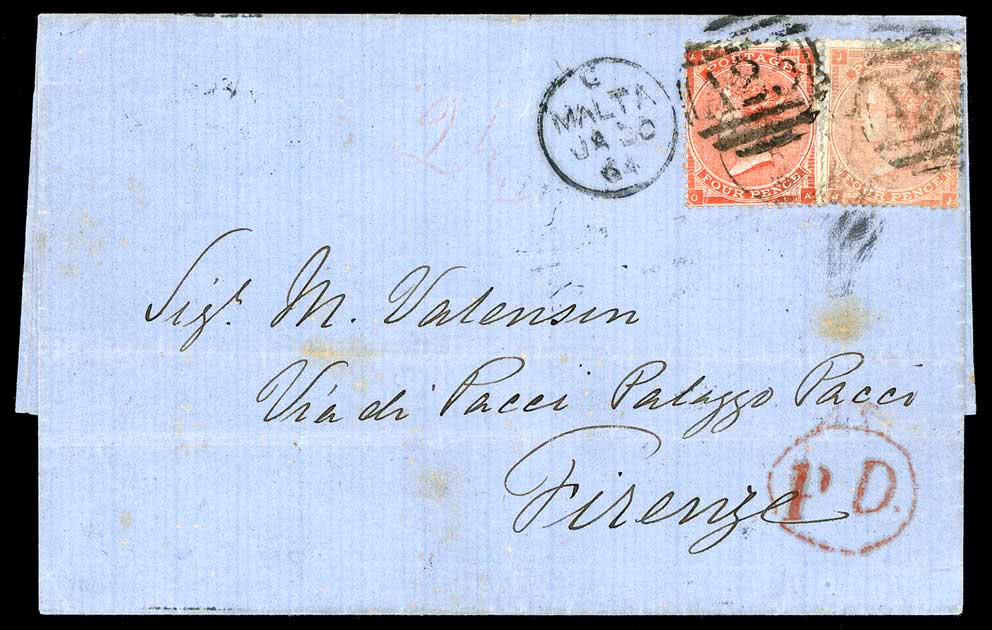 C
MALTA
JA 30
64
POSTAGE
FOUR PENCE
O A
FOUR PENCE
J
J
Sigr. M. Valensin
Via di Pacci Palazzo Pacci
Firenze
P D.